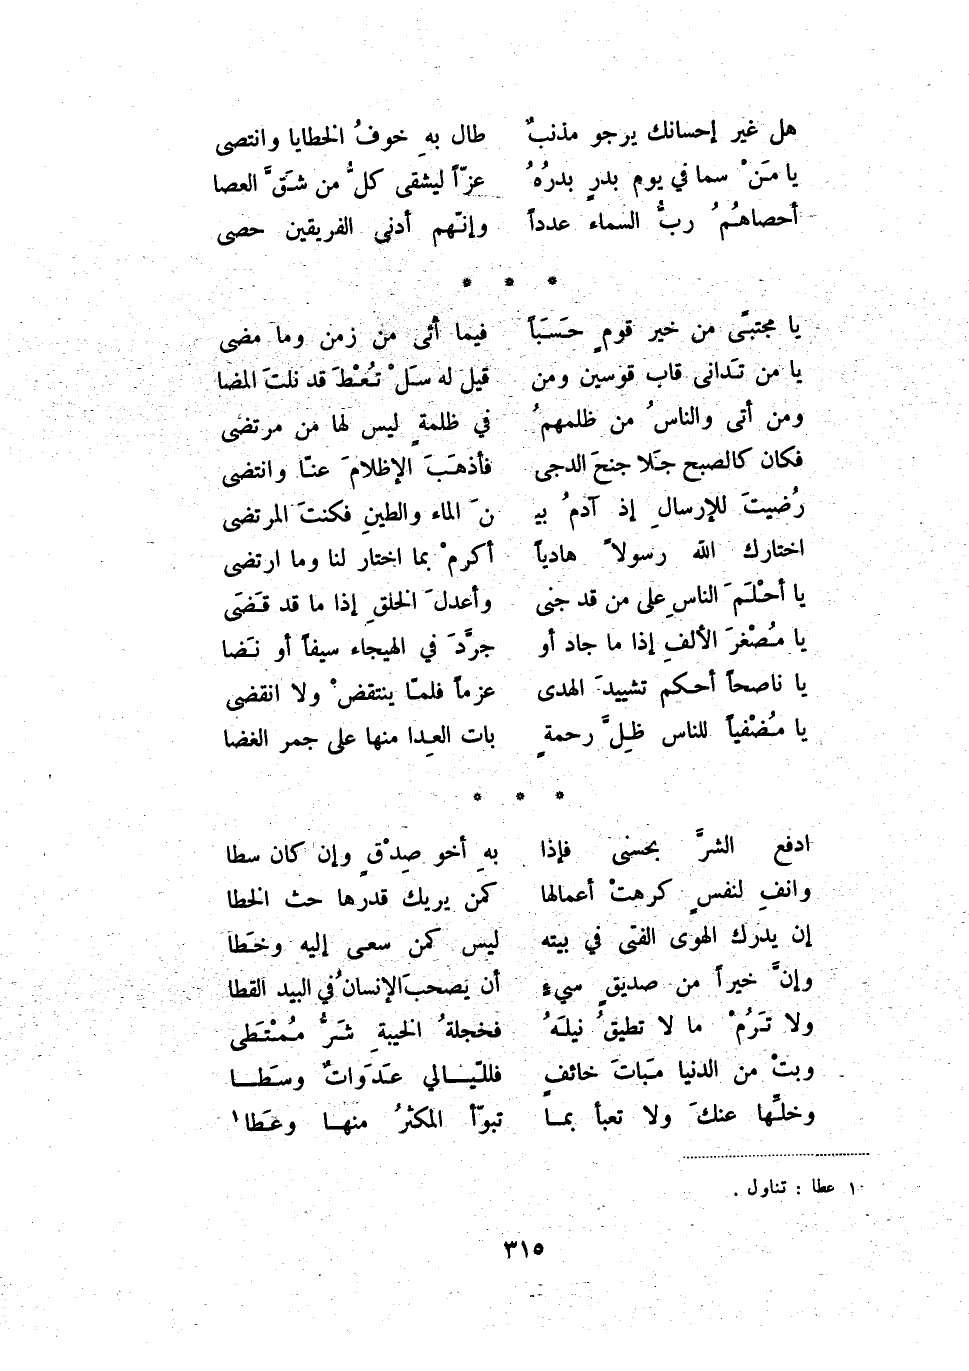 هل غير إحسانك يرجو مذنبٌ طال بهِ خوفُ الخطايا وانتصى
يا مَنْ سما في يوم بدرٍ بدرُهُ عزّاً ليشقى كلُّ من شَقَّ العصا
أحصاهُمُ ربُّ السماء عدداً وإنّهم أدنى الفريقين حصى
* * *
يا مجتبىً من خير قومٍ حَسَباً فيما أتى من زمن وما مضى
يا من تَدانى قاب قوسين ومن قيل له سَلْ تُعْطَ قد نلتَ المضا
ومن أتى والناسُ من ظلمهمُ في ظلمةٍ ليس لها من مرتضى
فكان كالصبح جَلا جنحَ الدجى فأذهَبَ الإظلامَ عنّا وانتضى
رُضيتَ للإرسالِ إذ آدمُ بيـ نَ الماء والطينِ فكنتَ المرتضى
اختارك الله رسولاً هادياً أكرمْ بما اختار لنا وما ارتضى
يا أحْلَمَ الناسِ على من قد جنى وأعدلَ الخلقِ إذا ما قد قَضَى
يا مُصْغرَ الألفِ إذا ما جاد أو جرَّدَ في الهيجاء سيفاً أو نَضا
يا ناصحاً أحكم تشييدَ الهدى عزماً فلمّا ينتقضْ ولا انقضى
يا مُضْفياً للناس ظِلَّ رحمةٍ بات العِدا منها على جمر الغضا
* * *
ادفع الشرَّ بحسنى فإذا بهِ أخو صِدْقٍ وإن كان سطا
وانفِ لنفسٍ كرهتْ أعمالها كمن يريك قدرها حث الخطا
إن يدرك الهوى الفتى في بيته ليس كمن سعى إليه وخَطا
وإنَّ خيراً من صديقٍ سيءٍ أن يَصحبَ الإنسانُ في البيد القطا
ولا تَرُمْ ما لا تطيقُ نيلَهُ فخجلةُ الخيبةِ شَرُّ مُمْتَطى
وبتْ من الدنيا مَبَاتَ خائفٍ فللّيالي عَدَوَاتٌ وسَطا
وخلِّها عنكَ ولا تعبأ بما تبوّأ المكثرُ منها وعَطا١
١ عطا : تناول .
٣١٥